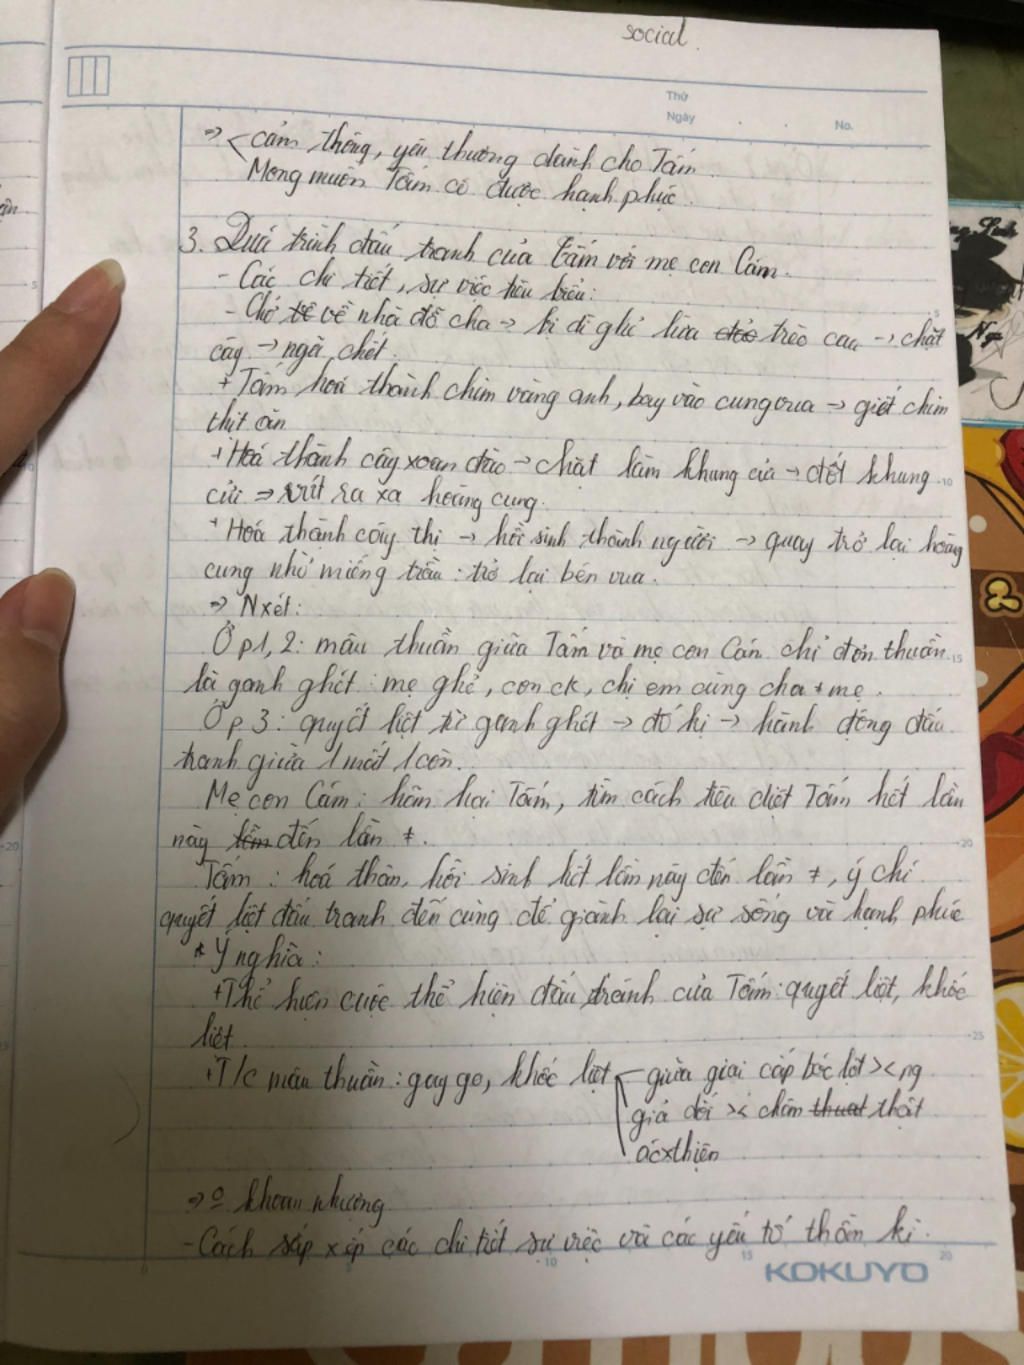 social.
Thứ
Ngày . . No.
=> < cảm thông, yêu thương dành cho Tấm.
Mong muốn Tấm có được hạnh phúc.
3. Quá trình đấu tranh của Tấm với mẹ con Cám.
- Các chi tiết, sự việc tiêu biểu:
- về nhà đỗ cha -> bị dì ghẻ lừa trèo cau -> chặt
cây -> ngã, chết.
+ Tấm hoá thành chim vàng anh, bay vào cung vua -> giết chim
thịt ăn
+ Hoá thành cây xoan đào -> chặt làm khung cửi -> đốt khung
cửi => vứt ra xa hoàng cung.
+ Hoá thành cây thị -> hồi sinh thành người -> quay trở lại hoàng
cung nhờ miếng trầu : trở lại bên vua.
=> Nxét:
Ở p1, 2: mâu thuẫn giữa Tấm và mẹ con Cám chỉ đơn thuần
là ganh ghét : mẹ ghẻ, con ck, chị em cùng cha ≠ mẹ.
Ở p 3: quyết liệt từ ganh ghét -> đố kị -> hành động đấu
tranh giữa 1 mất 1 còn.
Mẹ con Cám: hãm hại Tấm, tìm cách tiêu diệt Tấm hết lần
này đến lần ≠.
Tấm : hoá thân, hồi sinh hết lần này đến lần ≠, ý chí
quyết liệt đấu tranh đến cùng để giành lại sự sống và hạnh phúc
* Ý nghĩa:
+ Thể hiện cuộc thể hiện đấu tranh của Tấm: quyết liệt, khốc
liệt.
+ T/c mâu thuẫn : gay go, khốc liệt giữa giai cấp bóc lột >< ng
giả dối >< chân thật
ác x thiện
=> khoan nhượng
- Cách sắp xếp các chi tiết sự việc và các yếu tố thần kì.
KOKUYO